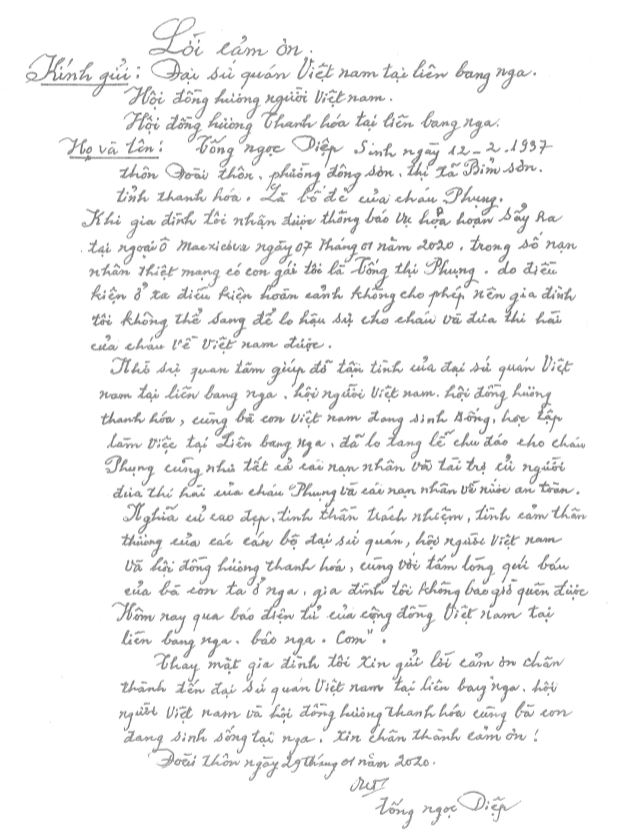 Lời cảm ơn.
Kính gửi: Đại sứ quán Việt nam tại liên bang nga.
Hội đồng hương người Việt nam.
Hội đồng hương Thanh hóa tại liên bang nga.
Họ và tên: Tống ngọc Diệp Sinh ngày 12-2.1937
thôn Đoài thôn, phường đông sơn, thị xã Bỉm sơn.
tỉnh thanh hóa. Là bố đẻ của cháu Phụng.
Khi gia đình tôi nhận được thông báo vụ hỏa hoạn sẩy ra
tại ngoại ô Macxicơva ngày 07 Tháng 01 năm 2020, trong số nạn
nhân thiệt mạng có con gái tôi là Tống thị Phụng. do điều
kiện ở xa điều kiện hoàn cảnh không cho phép nên gia đình
tôi không thể sang để lo hậu sự cho cháu và đưa thi hài
của cháu về Việt nam được.
Nhờ sự quan tâm giúp đỡ tận tình của đại sứ quán Việt
nam tại liên bang nga, hội người Việt nam. hội đồng hương
thanh hóa, cùng bà con Việt nam đang sinh sống, học tập
làm việc tại Liên bang nga, đã lo tang lễ chu đáo cho cháu
Phụng cũng như tất cả cái nạn nhân và tài trợ cử người
đưa thi hài của cháu Phụng và cái nạn nhân về nước an toàn.
Nghĩa cử cao đẹp, tinh thần trách nhiệm, tình cảm thân
thương của các cán bộ đại sứ quán, hội người Việt nam
và hội đồng hương thanh hoá, cùng với tấm lòng quí báu
của bà con ta ở nga, gia đình tôi không bao giờ quên được
Hôm nay qua báo điện tử của cộng đồng Việt Nam tại
liên bang nga. báo nga. Com".
Thay mặt gia đình tôi xin gửi lời cảm ơn chân
thành đến đại sứ quán Việt nam tại liên bang nga. hội
người Việt nam và hội đồng hương thanh hóa cùng bà con
đang sinh sống tại nga. xin chân thành cảm ơn!
Đoài thôn ngày 29 tháng 01 năm 2020.
Tống ngọc Diệp